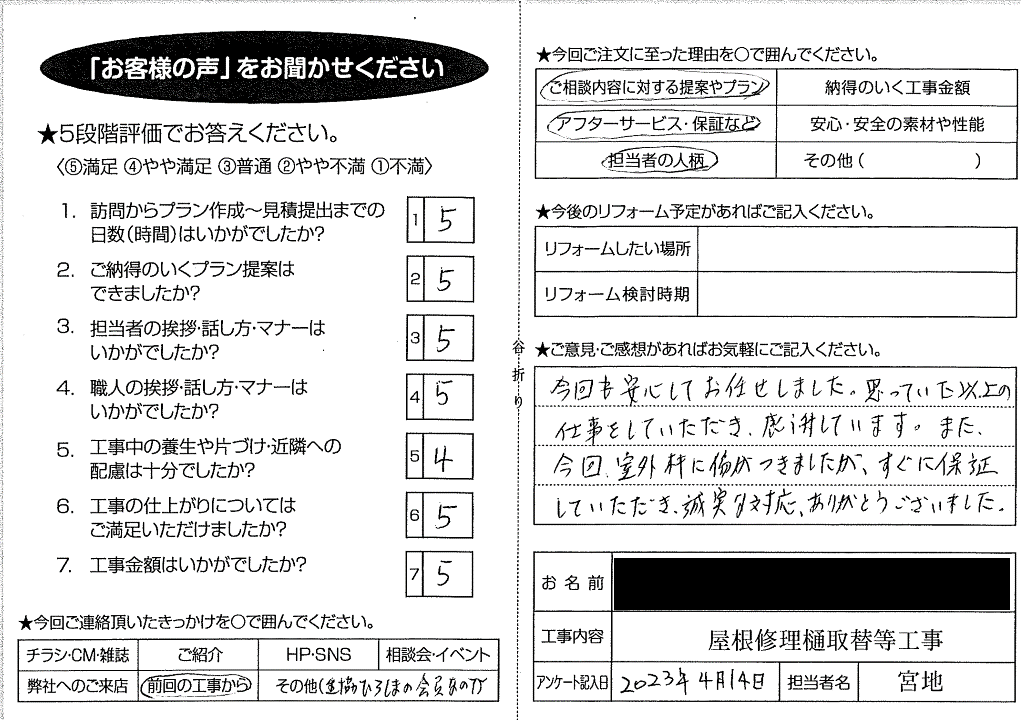 「お客様の声」をお聞かせください
★5段階評価でお答えください。
〈⑤満足 ④やや満足 ③普通 ②やや不満 ①不満〉
1. 訪問からプラン作成～見積提出までの
日数(時間)はいかがでしたか?
1 5
2. ご納得のいくプラン提案は
できましたか?
2 5
3. 担当者の挨拶・話し方・マナーは
いかがでしたか?
3 5
4. 職人の挨拶・話し方・マナーは
いかがでしたか?
4 5
5. 工事中の養生や片づけ・近隣への
配慮は十分でしたか?
5 4
6. 工事の仕上がりについては
ご満足いただけましたか?
6 5
7. 工事金額はいかがでしたか?
7 5
★今回ご連絡頂いたきっかけを○で囲んでください。
チラシ・CM・雑誌 ご紹介 HP・SNS 相談会・イベント
弊社へのご来店 前回の工事から その他(生協ひろしまの会員なので)
谷折り
★今回ご注文に至った理由を○で囲んでください。
ご相談内容に対する提案やプラン 納得のいく工事金額
アフターサービス・保証など 安心・安全の素材や性能
担当者の人柄 その他( )
★今後のリフォーム予定があればご記入ください。
リフォームしたい場所
リフォーム検討時期
★ご意見・ご感想があればお気軽にご記入ください。
今回も安心してお任せしました。思っていた以上の
仕事をしていただき、感謝しています。また、
今回、室外枠に傷がつきましたが、すぐに保証
していただき、誠実な対応、ありがとうございました。
お名前
工事内容 屋根修理樋取替等工事
アンケート記入日 2023年4月14日 担当者名 宮地